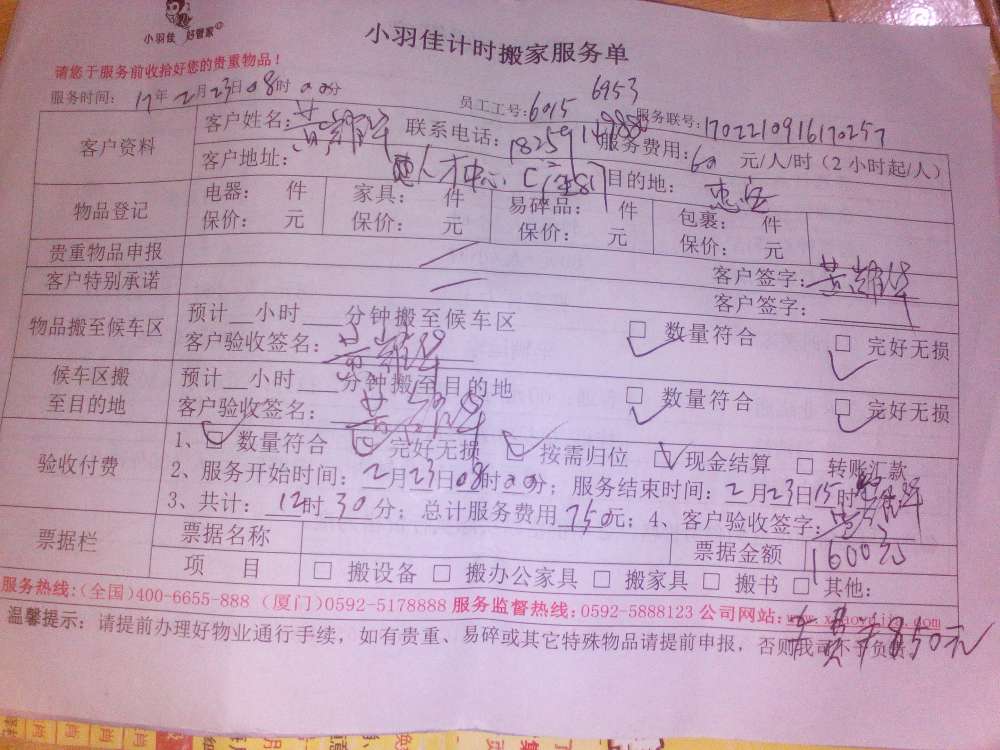 小羽佳 好管家
小羽佳计时搬家服务单
请您于服务前收拾好您的贵重物品！
服务时间： 17年2月23日08时00分 员工工号：6915 6953 服务联号：1702210916170257
客户资料 客户姓名：黄耀华 联系电话： 服务费用：60 元/人/时（2小时起/人）
客户地址： 人才中心 目的地：惠安
物品登记 电器： 件 家具： 件 易碎品： 件 包裹： 件
保价： 元 保价： 元 保价： 元 保价： 元
贵重物品申报 客户签字：黄耀华
客户特别承诺 客户签字：
物品搬至候车区 预计__小时___分钟搬至候车区 □ 数量符合 □ 完好无损
客户验收签名：黄耀华
候车区搬至目的地 预计__小时___分钟搬至目的地 □ 数量符合 □ 完好无损
客户验收签名：黄耀华
验收付费 1、□ 数量符合 □ 完好无损 □ 按需归位 □ 现金结算 □ 转账汇款
2、服务开始时间：2月23日08时00分；服务结束时间：2月23日15时
3、共计：12时30分；总计服务费用750元；4、客户验收签字：黄耀华
票据栏 票据名称 票据金额 1600元
项 目 □ 搬设备 □ 搬办公家具 □ 搬家具 □ 搬书 □ 其他：
服务热线：（全国）400-6655-888（厦门）0592-5178888 服务监督热线：0592-5888123 公司网站：
车费+850元
温馨提示：请提前办理好物业通行手续，如有贵重、易碎或其它特殊物品请提前申报，否则我司不予负责